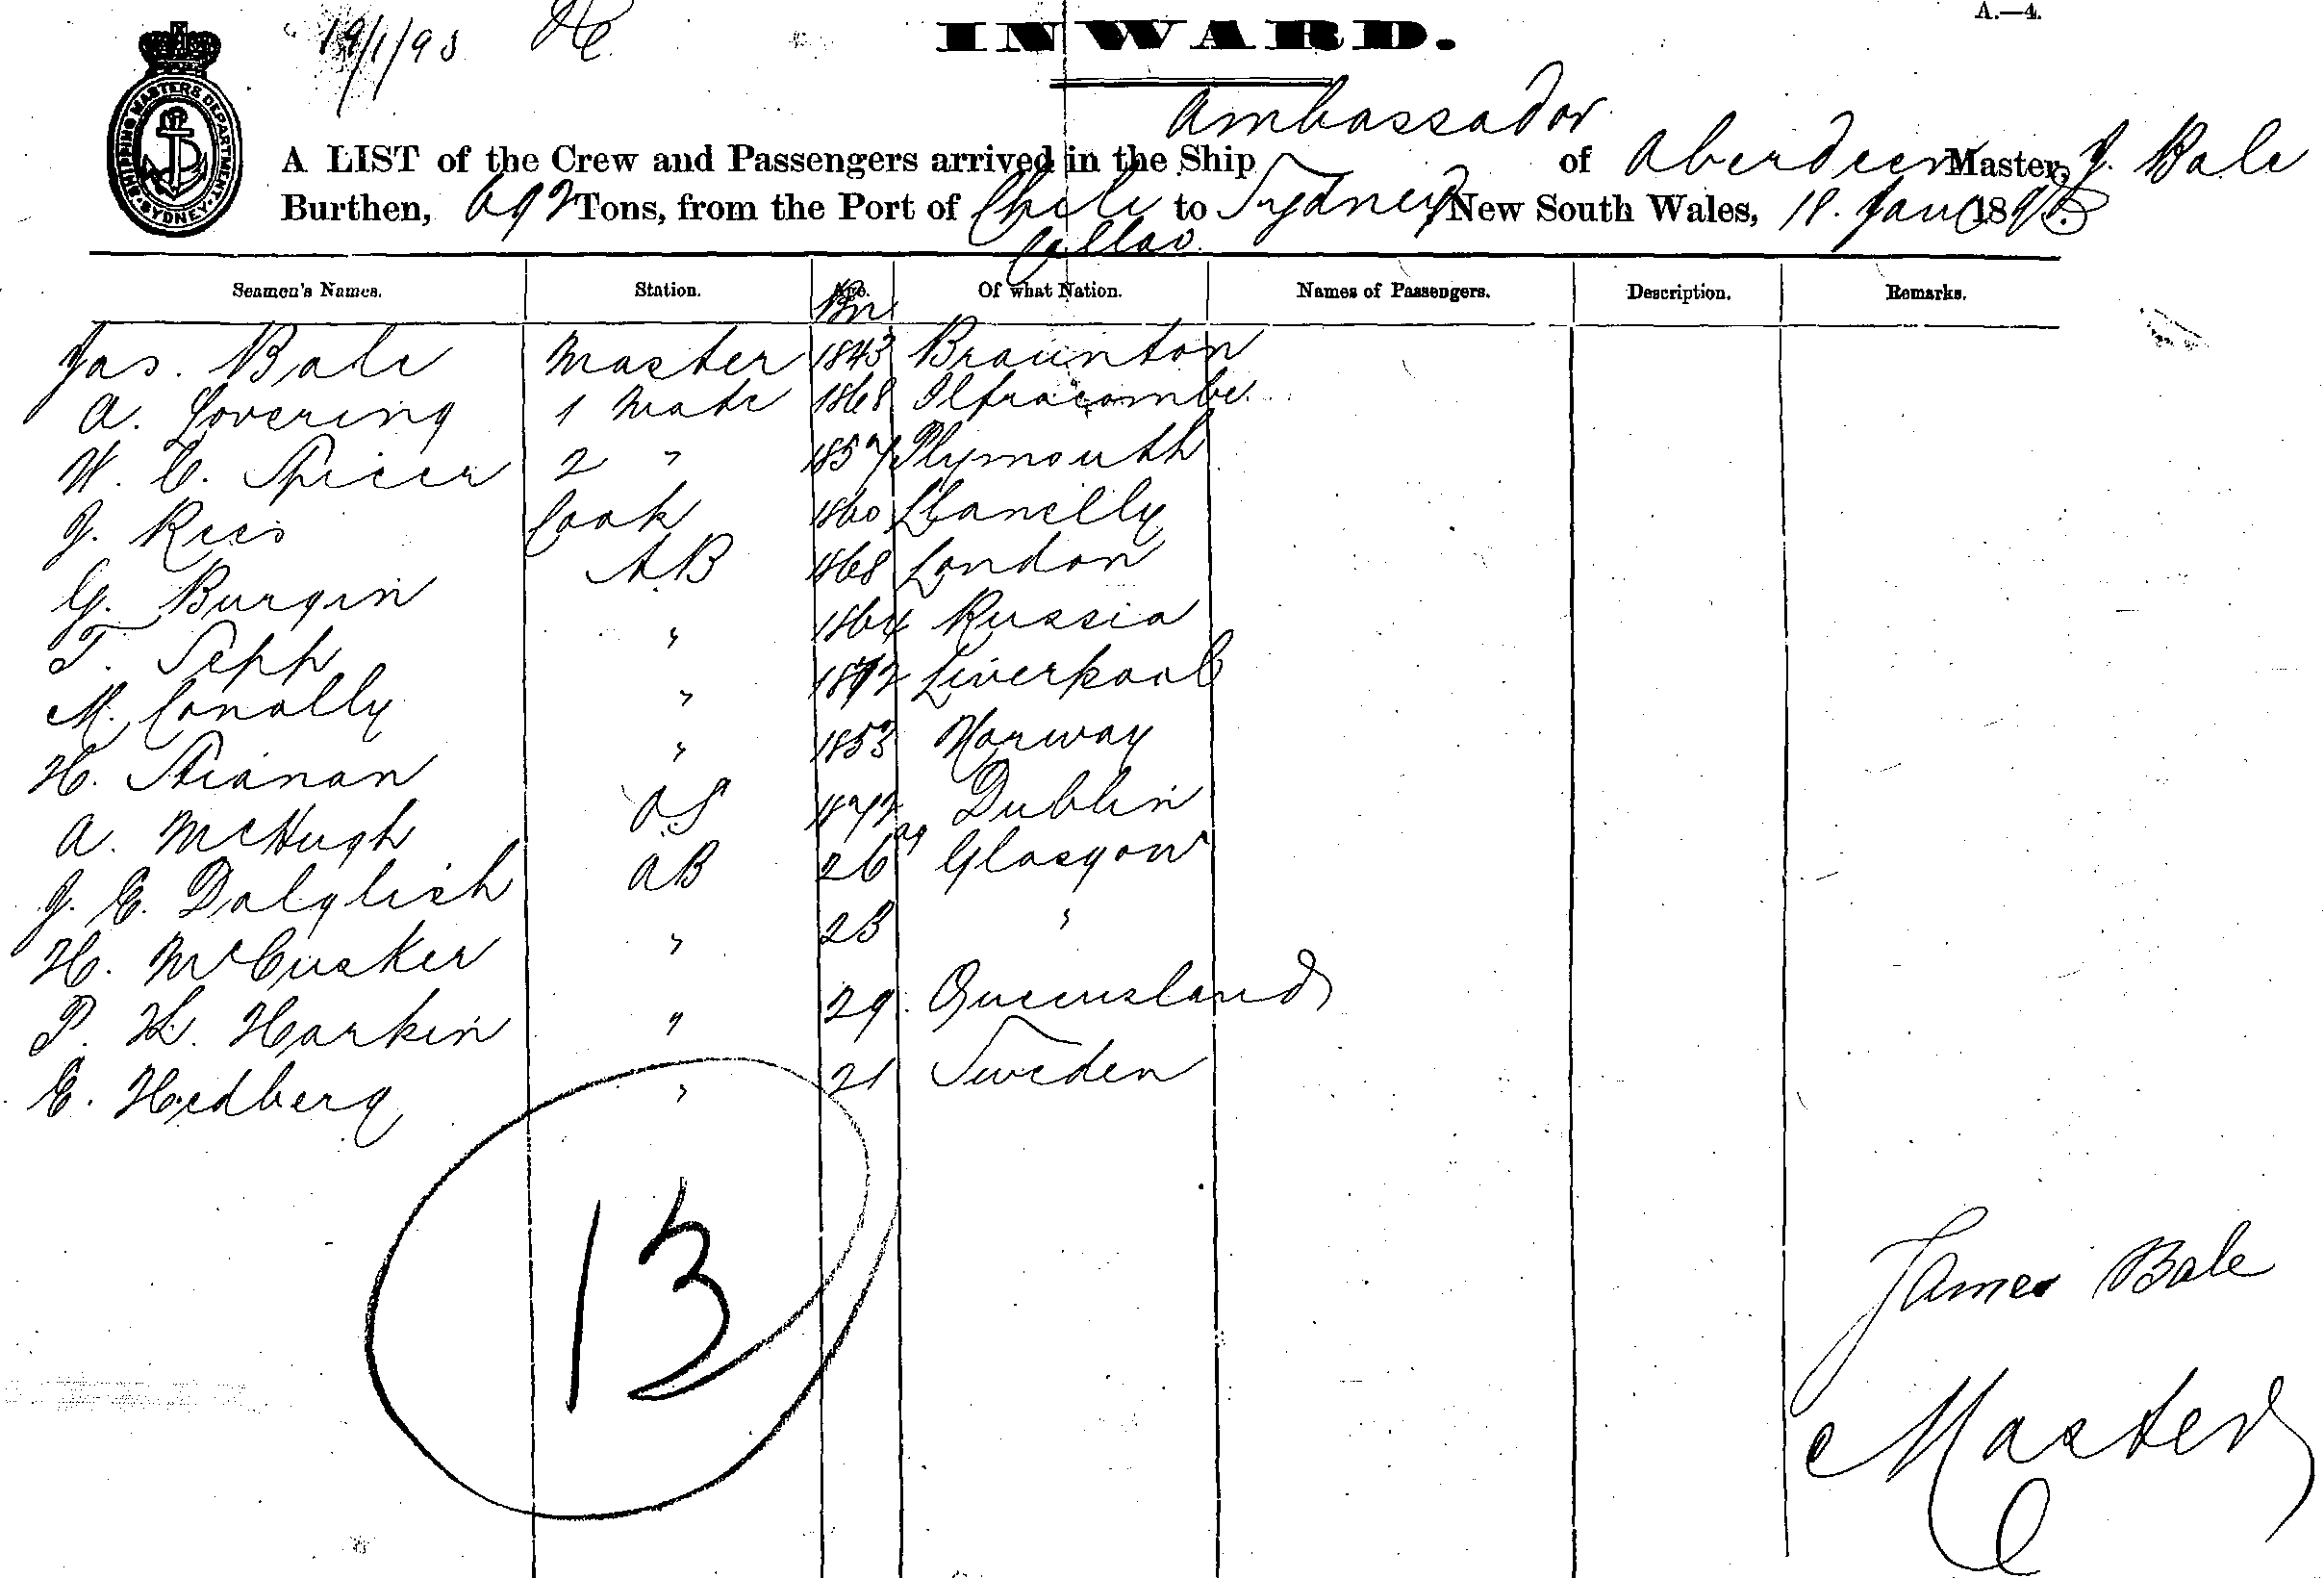 A.—4.
19/1/95
INWARD.
SHIPPING MASTERS DEPARTMENT SYDNEY
Ambassador
A LIST of the Crew and Passengers arrived in the Ship of Aberdeen Master, J. Bale
Burthen, 692 Tons, from the Port of Chili to Sydney New South Wales, 18. Jany 1895
Callao
Seamen's Names. Station. Age. Of what Nation. Names of Passengers. Description. Remarks.
Bn
Jas. Bale Master 1843 Braunton
A. Lovering 1 Mate 1868 Ilfracombe
W. C. Spicer 2 " 1857 Plymouth
J. Rees Cook 1860 Llanelly
G. Burgin AB 1868 London
T. Sepp " 1864 Russia
M. Conolly " 1872 Liverpool
H. Stianan " 1853 Norway
A. McHugh OS 1872 Dublin
J. E. Dalglish AB 26 ag Glasgow
H. McCusker " 23 "
P. H. Harkin " 29 Queensland
E. Hedberg " 21 Sweden
13
James Bale
Master